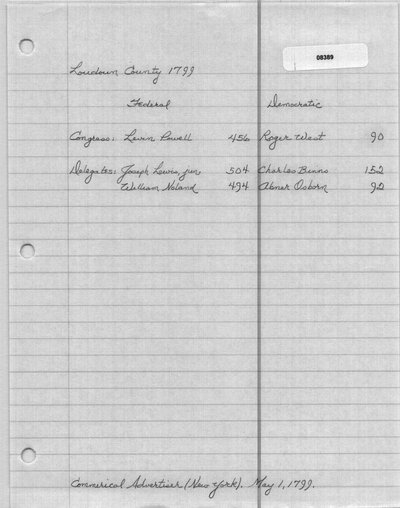 08389
Loudoun County 1799
Federal Democratic
Congress: Levin Powell 456 Roger West 90
Delegates: Joseph Lewis, jun 504 Charles Binns 152
William Noland 494 Abner Osborn 92
Commerical Advertiser (New York). May 1, 1799.